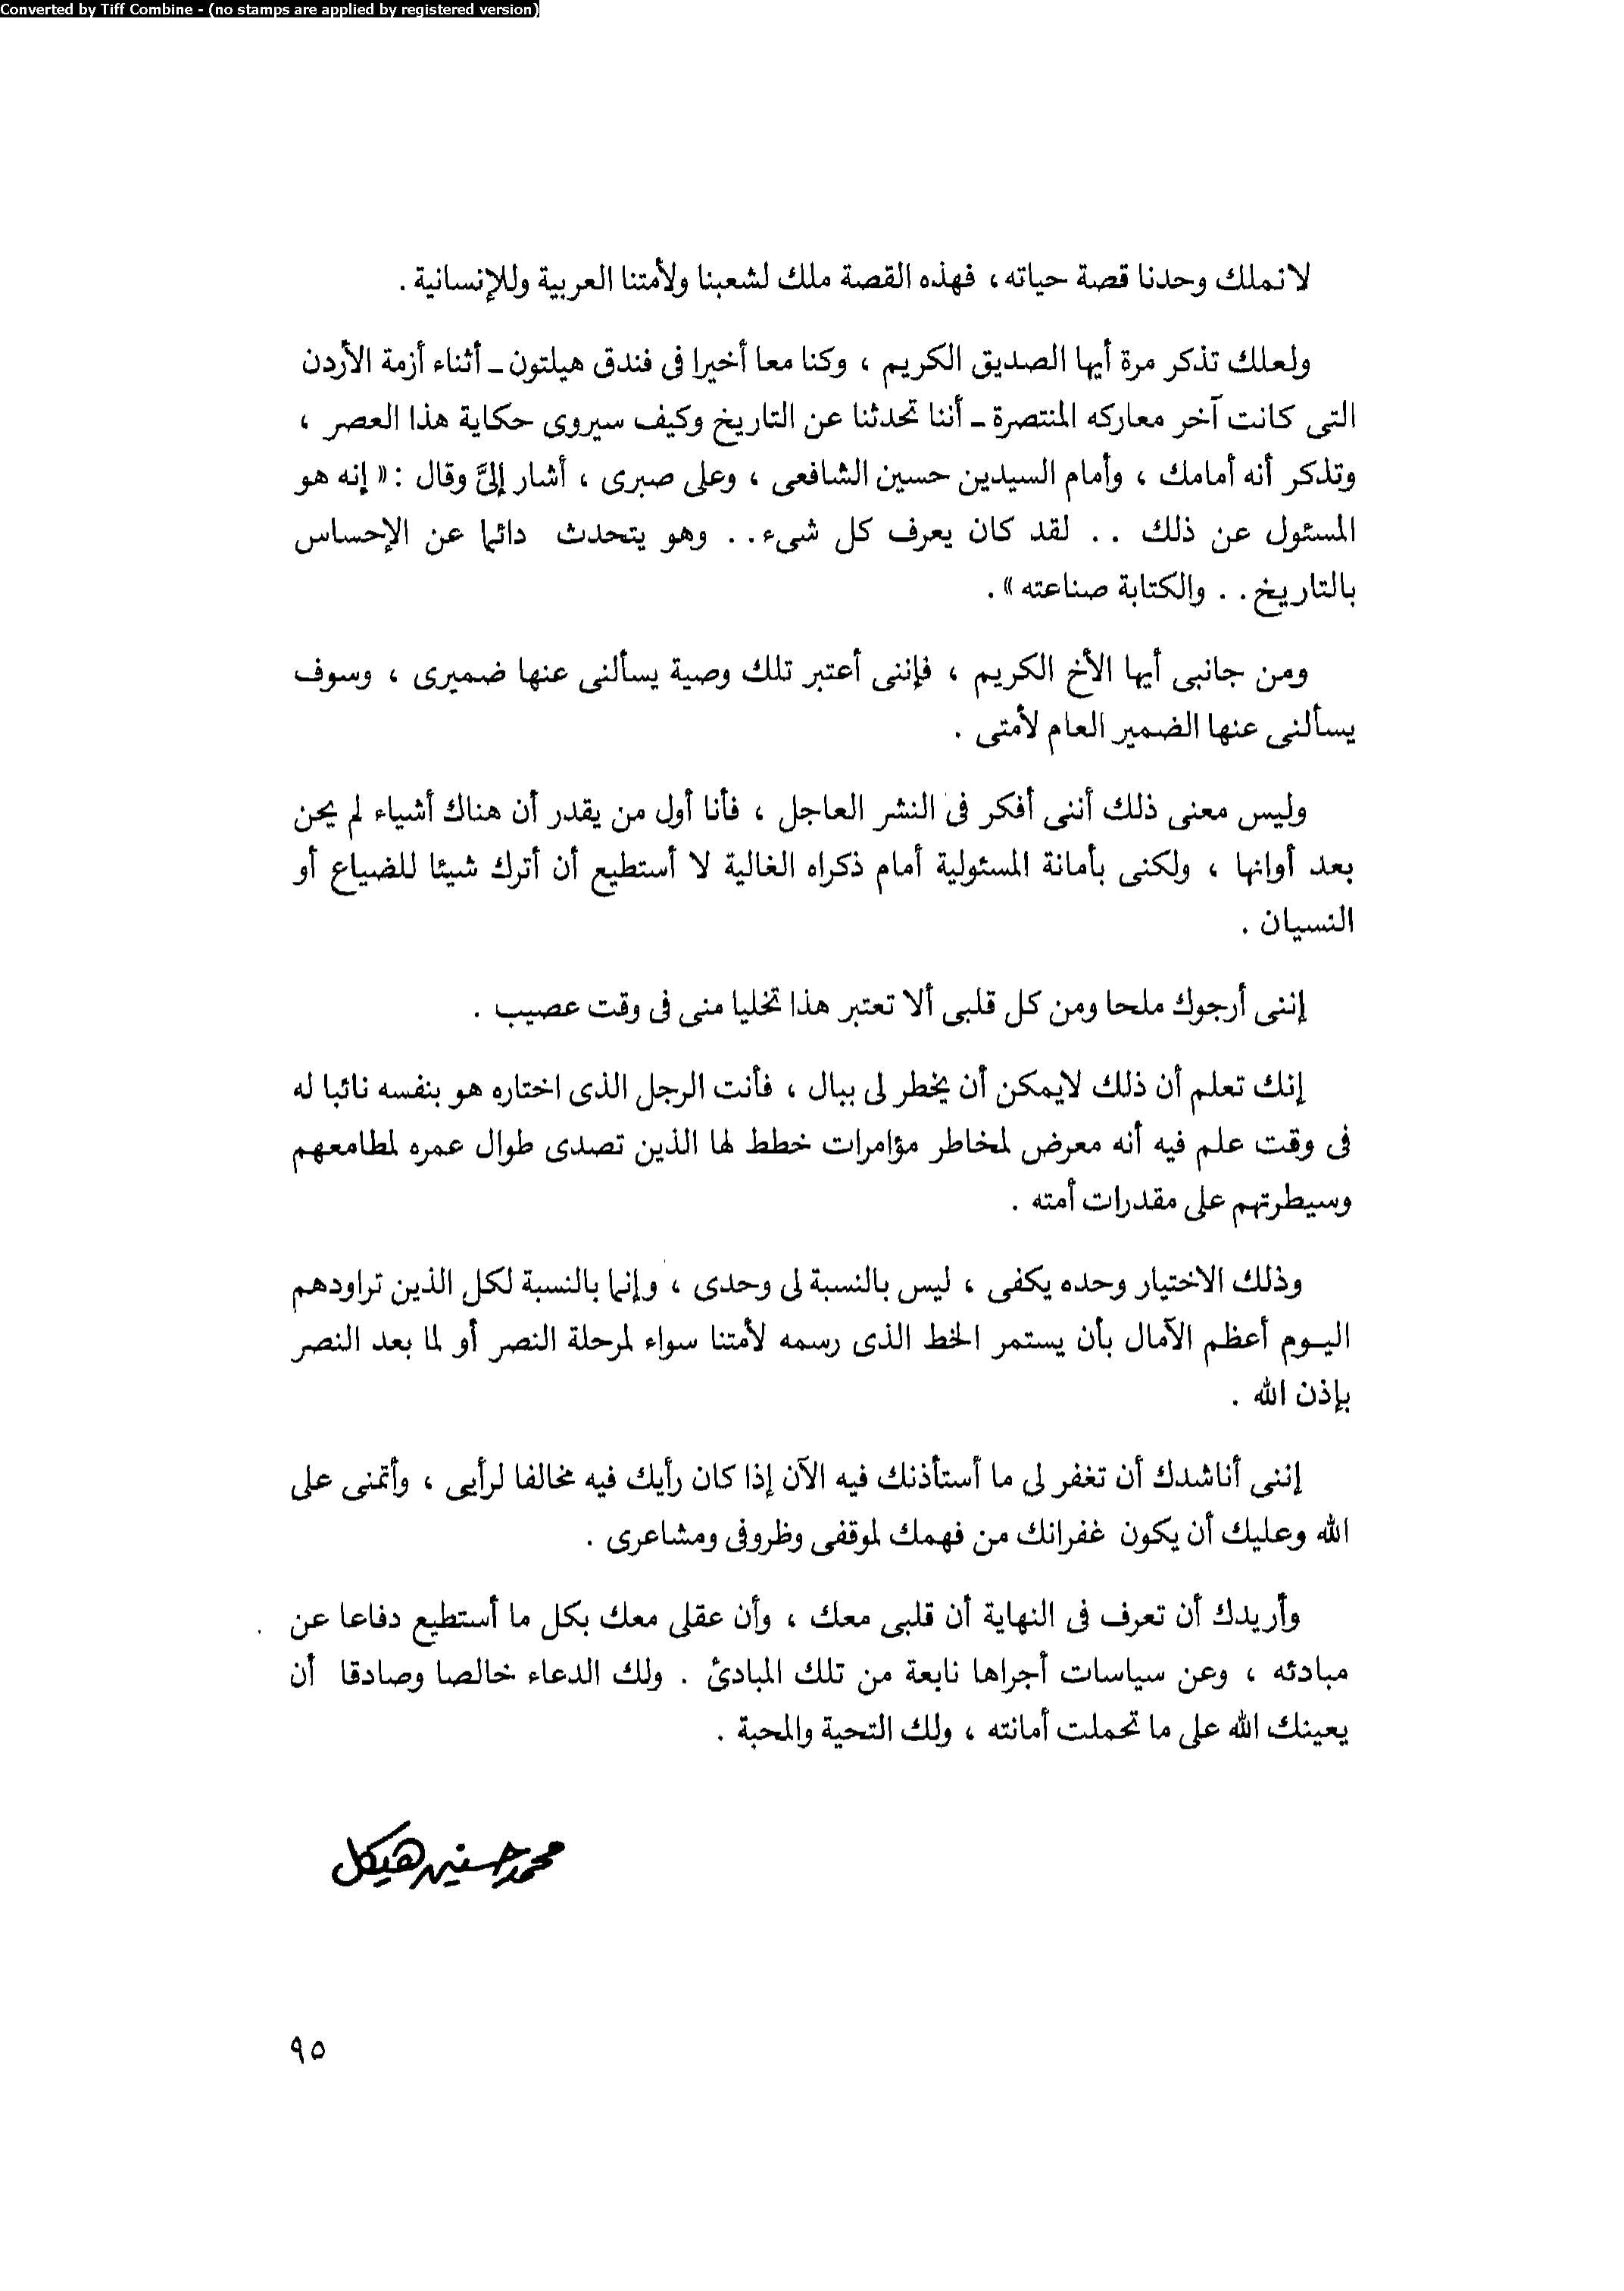 Converted by Tiff Combine - (no stamps are applied by registered version)
لانملك وحدنا قصة حياته، فهذه القصة ملك لشعبنا ولأمتنا العربية وللإنسانية .
ولعلك تذكر مرة أيها الصديق الكريم ، وكنا معا أخيرا فى فندق هيلتون ـ أثناء أزمة الأردن
التى كانت آخر معاركه المنتصرة ـ أننا تحدثنا عن التاريخ وكيف سيروى حكاية هذا العصر ،
وتذكر أنه أمامك ، وأمام السيدين حسين الشافعى ، وعلى صبرى ، أشار إلىَّ وقال : « إنه هو
المسئول عن ذلك . . لقد كان يعرف كل شىء . . وهو يتحدث دائما عن الإحساس
بالتاريخ . . والكتابة صناعته » .
ومن جانبى أيها الأخ الكريم ، فإننى أعتبر تلك وصية يسألنى عنها ضميرى ، وسوف
يسألنى عنها الضمير العام لأمتى .
وليس معنى ذلك أننى أفكر فى النشر العاجل ، فأنا أول من يقدر أن هناك أشياء لم يحن
بعد أوانها ، ولكنى بأمانة المسئولية أمام ذكراه الغالية لا أستطيع أن أترك شيئا للضياع أو
النسيان .
إننى أرجوك ملحا ومن كل قلبى ألا تعتبر هذا تخليا منى فى وقت عصيب .
إنك تعلم أن ذلك لايمكن أن يخطر لى ببال ، فأنت الرجل الذى اختاره هو بنفسه نائبا له
فى وقت علم فيه أنه معرض لمخاطر مؤامرات خطط لها الذين تصدى طوال عمره لمطامعهم
وسيطرتهم على مقدرات أمته .
وذلك الاختيار وحده يكفى ، ليس بالنسبة لى وحدى ، وإنما بالنسبة لكل الذين تراودهم
اليـوم أعظم الآمال بأن يستمر الخط الذى رسمه لأمتنا سواء لمرحلة النصر أو لما بعد النصر
بإذن الله .
إننى أناشدك أن تغفر لى ما أستأذنك فيه الآن إذا كان رأيك فيه مخالفا لرأيى ، وأتمنى على
الله وعليك أن يكون غفرانك من فهمك لموقفى وظروفى ومشاعرى .
وأريدك أن تعرف فى النهاية أن قلبى معك ، وأن عقلى معك بكل ما أستطيع دفاعا عن
مبادئه ، وعن سياسات أجراها نابعة من تلك المبادئ . ولك الدعاء خالصا وصادقا أن
يعينك الله على ما تحملت أمانته ، ولك التحية والمحبة .
محمد حسنين هيكل
٩٥